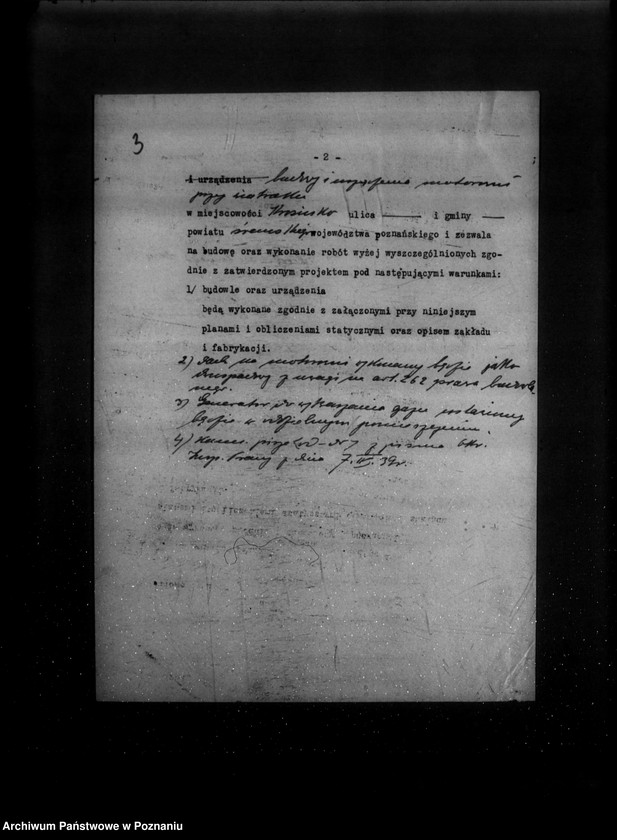 3
- 2 -
i urządzenia budowy i urządzenia motorowni
przy tartaku
w miejscowości ulica i gminy
powiatu śremskiego województwa poznańskiego i zezwala
na budowę oraz wykonanie robót wyżej wyszczególnionych zgo-
dnie z zatwierdzonym projektem pod następującymi warunkami:
1/ budowle oraz urządzenia
będą wykonane zgodnie z załączonymi przy niniejszym
planami i obliczeniami statycznymi oraz opisem zakładu
i fabrykacji.
2) Dach na motorowni wykonany będzie jako
z uwagi na art. 262 prawa budowla
nego.
3) Generator do gazu ustawiony
będzie w oddzielnym pomieszczeniu.
4) z pisma Okr.
Insp. Pracy z dnia 7.III.39r.
Archiwum Państwowe w Poznaniu